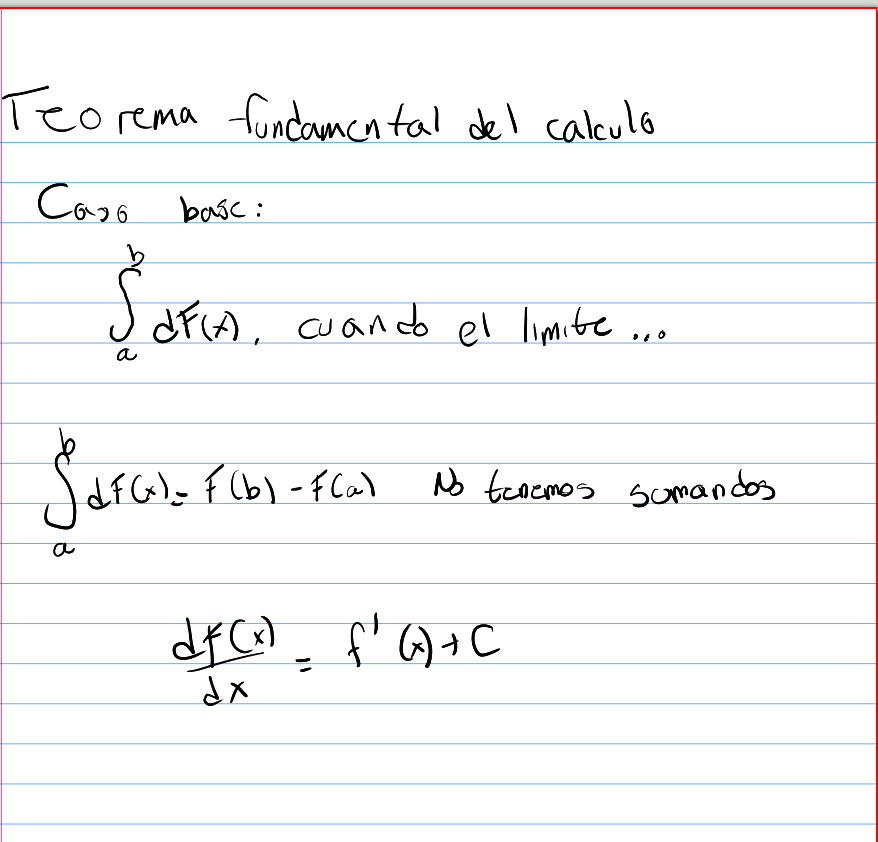 Teorema fundamental del calculo
Caso base:
∫_a^b dF(x), cuando el limite ...
∫_a^b dF(x) = F(b) - F(a) No tenemos sumandos
df(x)/dx = f'(x) + C